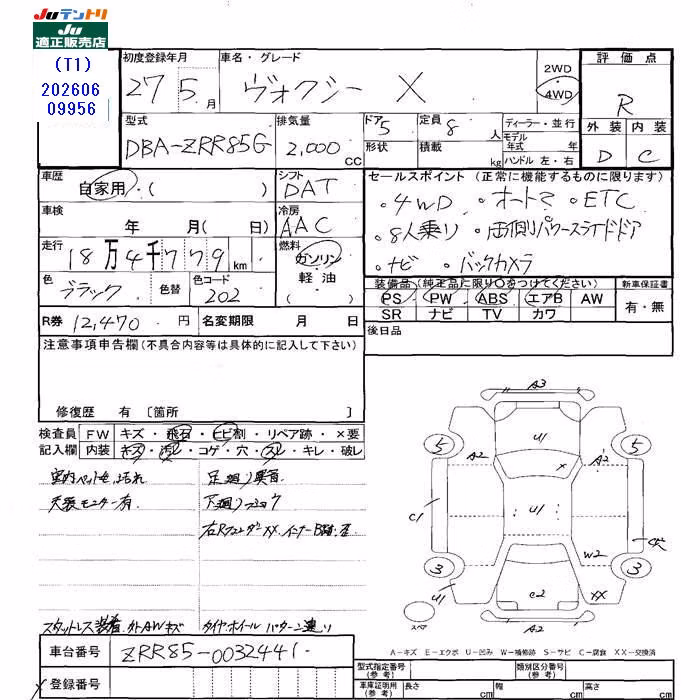 JUテントリ
JU
適正販売店
(T1)
202606
09956
初度登録年月
27 5 月
車名・グレード
ヴォクシー X
2WD
4WD
評価点
R
外装 内装
D C
型式
DBA-ZRR85G
排気量
2,000 CC
ドア 5
形状
定員 8 人
積載 kg
ディーラー・並行
モデル年式 年
ハンドル 左・右
車歴
自家用・( )
シフト
DAT
車検
年 月( 日)
冷房
AAC
走行
18万4千779 km
燃料
ガソリン
軽・油
・( )
色
ブラック
色替
色コード
202
R券 12,470 円
名変期限 月 日
セールスポイント (正常に機能するものに限ります)
・4WD ・オートマ ・ETC
・8人乗り ・両側パワースライドドア
・ナビ ・バックカメラ
装備品(純正品に限り○をつけてください)
新車保証書
PS PW ABS エアB AW
有・無
SR ナビ TV カワ
後日品
注意事項申告欄(不具合内容等は具体的に記入して下さい)
修復歴 有 〔箇所 〕
検査員
記入欄
FW キズ・飛石・ヒビ割・リペア跡・×要
内装 キズ・汚レ・コゲ・穴・スレ・キレ・破レ
室内ペット毛、汚れ
天張モニター有
足廻り異音
下廻り
スタットレス装着 外AWキズ
タイヤ・ホイール パターン違い
A3
U1
5
5
A2
A2
X
C1
U1
W2
3
3
U1
C2
XX
A2
スペア
A-キズ E-エクボ U-凹み W-補修跡 S-サビ C-腐食 XX-交換済
車台番号
ZRR85-0032441
登録番号
型式指定番号
(参考)
類別区分番号
(参考)
車庫証明用
(参考)
長さ cm
幅 cm
高さ cm